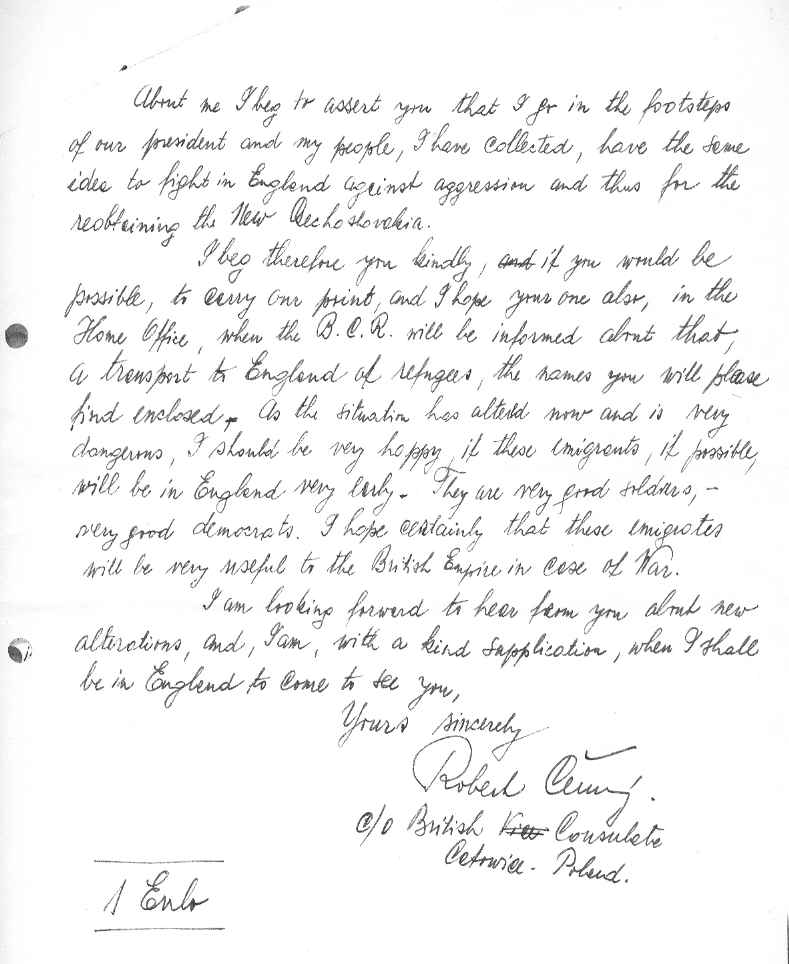 About me I beg to assert you that I go in the footsteps
of our president and my people, I have collected, have the same
idea to fight in England against aggression and thus for the
reobtaining the New Cechoslovakia.
I beg therefore you kindly, and if you would be
possible, to carry our point, and I hope your one also, in the
Home Office, when the B.C.R. will be informed about that,
a transport to England of refugees, the names you will please
find enclosed. As the situation has altered now and is very
dangerous, I should be very happy, if these emigrants, if possible,
will be in England very early. They are very good soldiers, -
very good democrats. I hope certainly that these emigrates
will be very useful to the British Empire in case of War.
I am looking forward to hear from you about new
alterations, and, I am, with a kind supplication, when I shall
be in England to come to see you,
Yours sincerely
Robert Černý.
c/o British Vice Consulate
Catowice - Poland.
1 Enlo